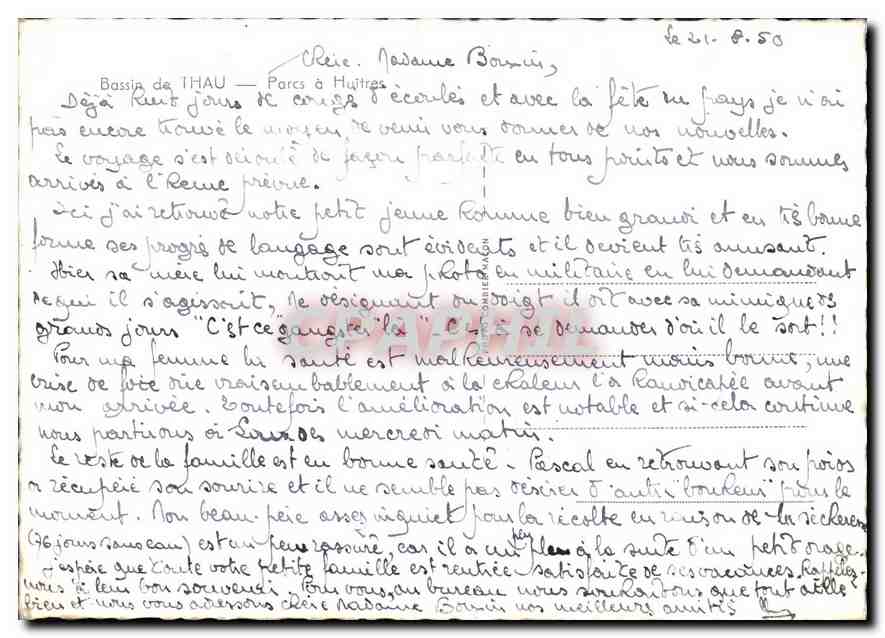 Le 21-8-50
Chère Madame
Bassin de THAU — Parcs à Huîtres
Déjà huit jours de congé d'écoulés et avec la fête du pays je n'ai
pas encore trouvé le moyen de venir vous donner de nos nouvelles.
Le voyage s'est déroulé de façon parfaite en tous points et nous sommes
arrivés à l'heure prévue.
Ici j'ai retrouvé notre petit jeune homme bien grandi et en très bonne
forme ses progrès de langage sont évidents et il devient très amusant.
Hier sa mère lui montrait ma photo en militaire en lui demandant
de qui il s'agissait, me désignant du doigt il dit avec sa mimique des
grands jours "C'est ce gangster là" se demander d'où il le sort!!
Pour ma femme la santé est malheureusement moins bonne, une
crise de foie due vraisemblablement à la chaleur l'a handicapée avant
mon arrivée. Toutefois l'amélioration est notable et si cela continue
nous partirons à Lourdes mercredi matin.
Le reste de la famille est en bonne santé. Pascal en retrouvant son poids
a récupéré son sourire et il ne semble pas désirer d'autre "bonheur" pour le
moment. Mon beau-père assez inquiet pour la récolte en raison de la sécheresse
(76 jours sans eau) est un peu rassuré, car il a un peu plu à la suite d'un petit orage.
J'espère que toute votre petite famille est rentrée satisfaite de ses vacances. Rappelez-
nous à leur bon souvenir. Pour vous, au bureau nous souhaitons que tout aille
bien et nous vous adressons chère Madame nos meilleures amitiés